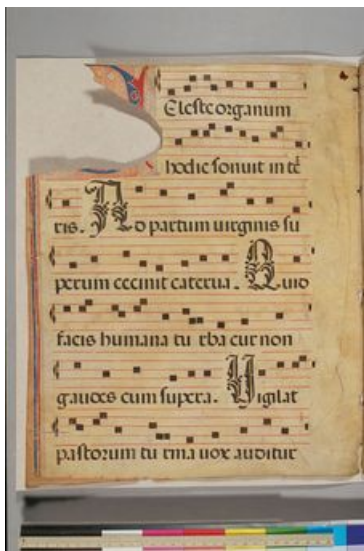 Eleste organum
hodie sonuit in tẽ
ris. Ad partum uirginis su
perum cecinit caterua. Quid
facis humana tu rba cur non
gaudes cum supera. Uigilat
pastorum tu rma uox auditur